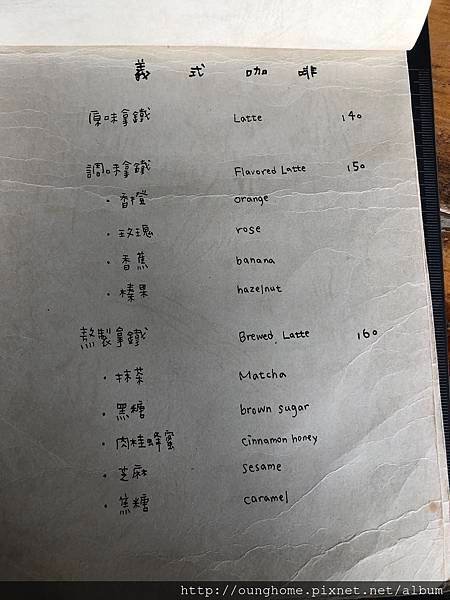 義式咖啡
原味拿鐵 Latte 140
調味拿鐵 Flavored Latte 150
・香橙 orange
・玫瑰 rose
・香蕉 banana
・榛果 hazelnut
熬製拿鐵 Brewed Latte 160
・抹茶 Matcha
・黑糖 brown sugar
・肉桂蜂蜜 cinnamon honey
・芝麻 sesame
・焦糖 caramel
http://ounghome.pixnet.net/album